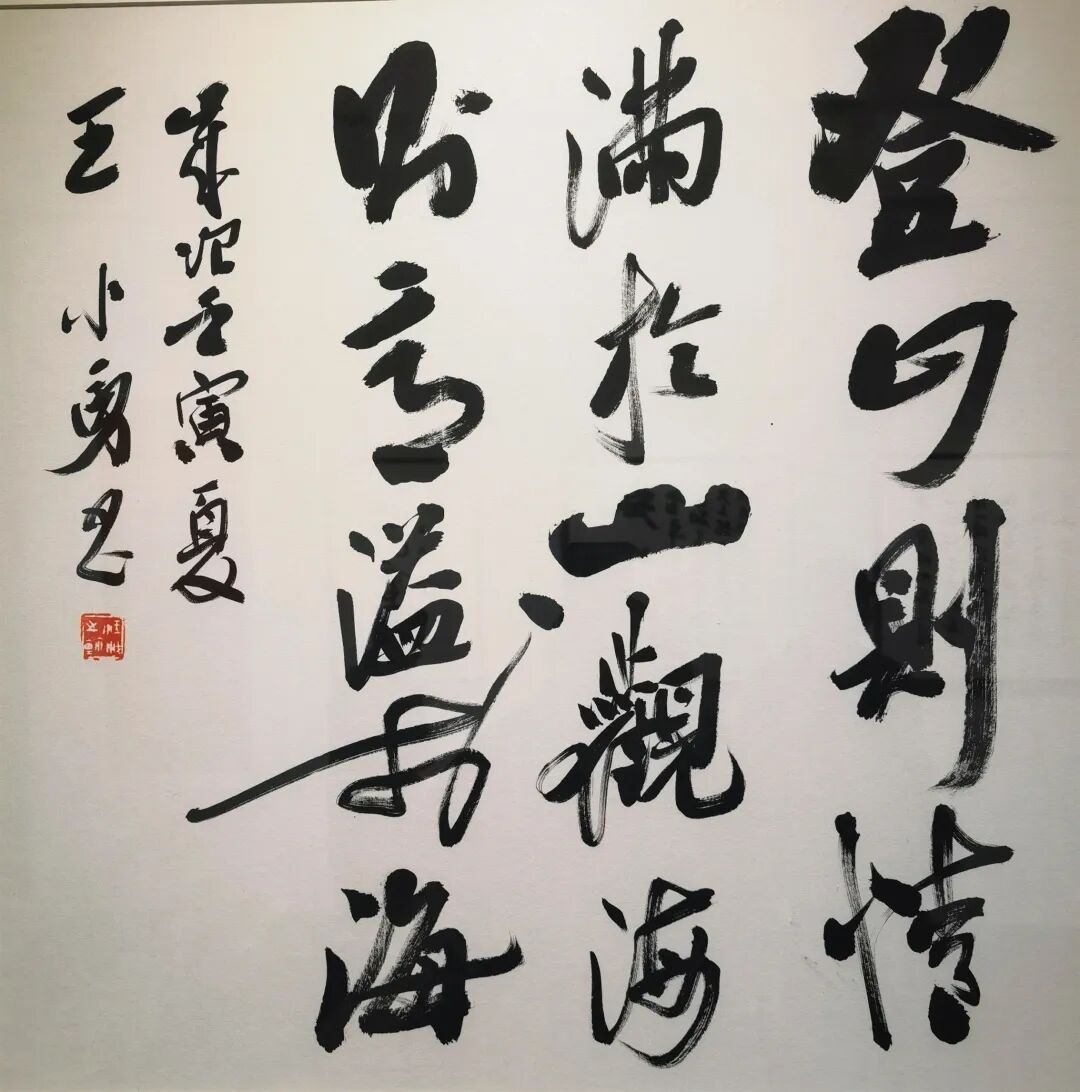 登山則情
滿於山觀海
则意溢於海
歲次壬寅夏
王小勇书